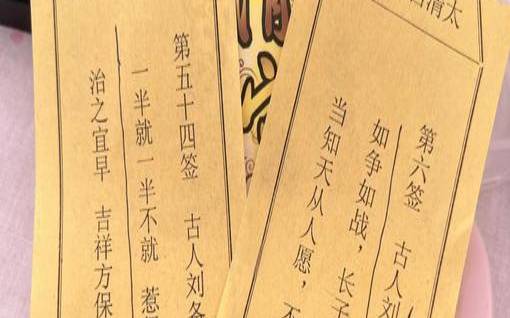 第五十四签 古人刘备
一半就一半不就 惹
治之宜早 吉祥方保
太清
第六签 古人刘
如争如战，长子
当知天从人愿，不